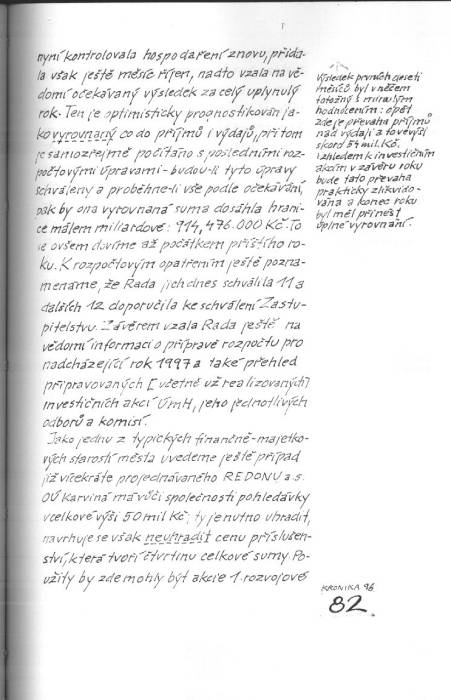 nyní kontrolovala hospodaření znovu, přida-
la však ještě měsíc říjen, nadto vzala na vě-
domí očekávaný výsledek za celý uplynulý
rok. Ten je optimisticky prognostikován ja-
ko vyrovnaný co do příjmů i výdajů, při tom
je samozřejmě počítáno s posledními roz-
počtovými úpravami - budou-li tyto úpravy
schváleny a proběhne-li vše podle očekávání,
pak by ona vyrovnaná suma dosáhla hrani-
ce málem miliardové: 914,476.000 Kč. To
se ovšem dovíme až počátkem příštího ro-
ku. K rozpočtovým opatřením ještě pozna-
menáme, že Rada jich dnes schválila 11 a
dalších 12 doporučila ke schválení Zastu-
pitelstvu. Závěrem vzala Rada ještě na
vědomí informaci o přípravě rozpočtu pro
nadcházející rok 1997 a také přehled
připravovaných [včetně už realizovaných]
investičních akcí ÚMH, jeho jednotlivých
odborů a komisí.
Jako jednu z typických finančně-majetko-
vých starostí města uvedeme ještě případ
již vícekráte projednávaného REDONU a.s.
OÚ Karviná má vůči společnosti pohledávky
v celkové výši 50 mil Kč; ty je nutno uhradit,
navrhuje se však neuhradit cenu příslušen-
ství, která tvoří čtvrtinu celkové sumy. Po-
užity by zde mohly být akcie 1. rozvojové
Výsledek prvních deseti
měsíců byl v něčem
totožný s minulým
hodnocením: opět
zde je převaha příjmů
nad výdaji a to ve výši
skoro 54 mil Kč.
Vzhledem k investičním
akcím v závěru roku
bude tato převaha
prakticky zlikvido-
vána a konec roku
by měl přinést
úplné vyrovnání.
KRONIKA 96
82.